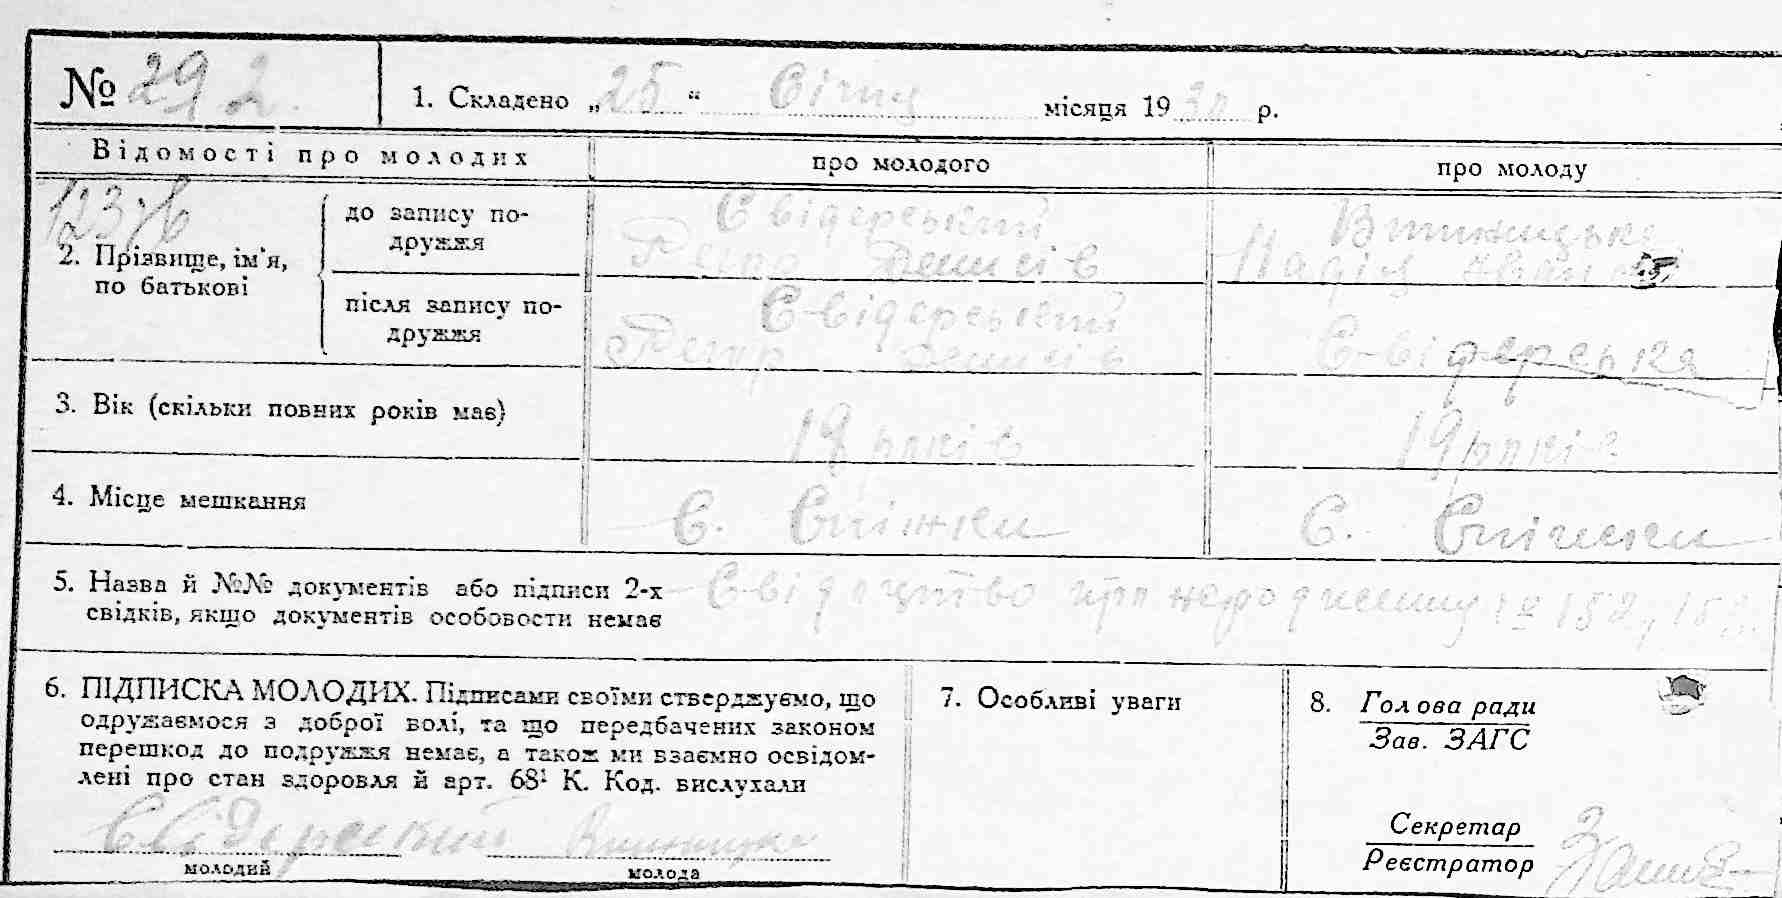 № 292.
1. Складено „25“ Січня місяця 1930 р.
Відомості про молодих
про молодого
про молоду
2. Прізвище, ім'я, по батькові
до запису по-
дружжя
Свідерський
Петро Денисів
Винницька
Надія Іван
після запису по-
дружжя
Свідерський
Петро Денисів
Свідерська
3. Вік (скільки повних років має)
18 років
19 років
4. Місце мешкання
С. Спіжки
С. Спіжки
5. Назва й №№ документів або підписи 2-х
свідків, якщо документів особовости немає
Свідоцтво про народження № 152, 15
6. ПІДПИСКА МОЛОДИХ. Підписами своїми стверджуємо, що
одружаємося з доброї волі, та що передбачених законом
перешкод до подружжя немає, а також ми взаємно освідом-
лені про стан здоровля й арт. 68¹ К. Код. вислухали
Свідерский Винницка
молодий
молода
7. Особливі уваги
8. Голова ради
Зав. ЗАГС
Секретар
Реєстратор